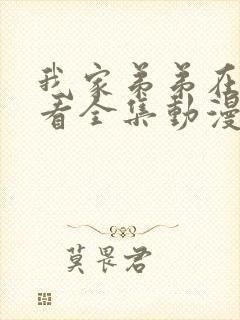 我家弟弟在
看全集動漫
莫畏君